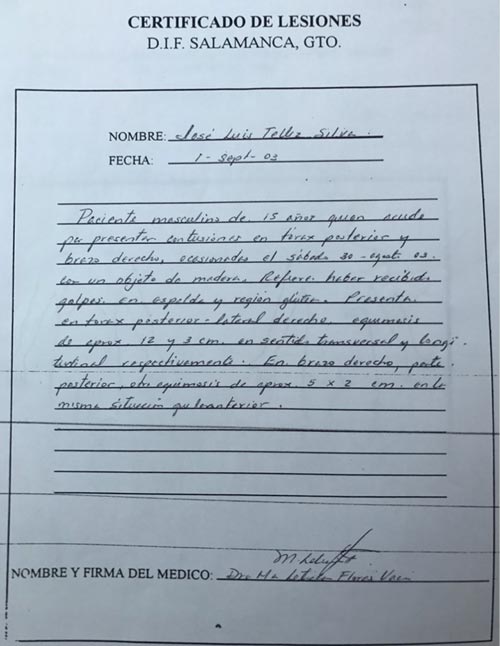 CERTIFICADO DE LESIONES
D.I.F. SALAMANCA, GTO.
NOMBRE: José Luis Tellez Silva.
FECHA: 1 - Sept - 03
Paciente masculino de 15 años quien acude
por presentar contusiones en torax posterior y
brazo derecho, ocasionadas el sábado 30-agosto 03.
con un objeto de madera. Refiere haber recibido
golpes en espalda y región glútea. Presenta.
en torax posterior-lateral derecho equimosis
de aprox. 12 y 3 cm. en sentido transversal y longi-
tudinal respectivamente. En brazo derecho, parte
posterior, otra equimosis de aprox. 5 x 2 cm. en la
misma situación que la anterior.
NOMBRE Y FIRMA DEL MEDICO: Dra Ma Leticia Flores